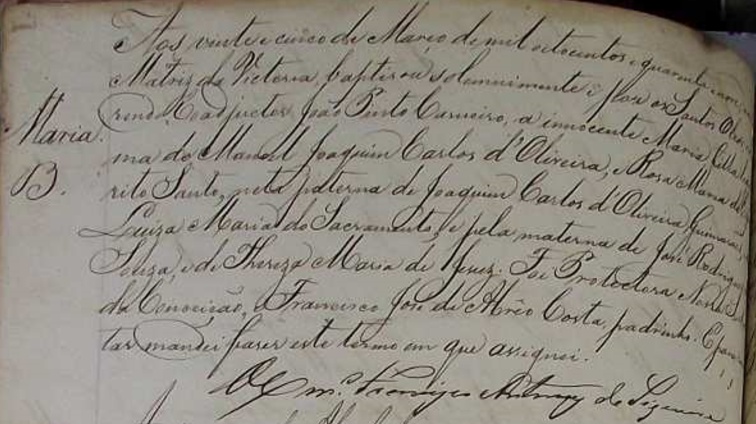 Aos vinte e cinco de Março de mil oitocentos e quarenta e
Matriz da Victoria, baptisou solemnimente e pôs os Santos
rendo Coadjuctor João Pinto Carneiro, a innocente Maria,
Maria.
ma de Manoel Joaquim Carlos d'Oliveira, e Rosa Maria do
B.
rito Santo, neta paterna de Joaquim Carlos d'Oliveira Guimarães,
Luiza Maria do Sacramento, e pela materna de José Rodrigues
Souza, e de Thereza Maria de Jesuz. Foi Protectora Nossa
da Conceição, e Francisco José de Abrêo Costa, padrinho. E para
tar mandei fazer este termo em que assignei.
O C
de